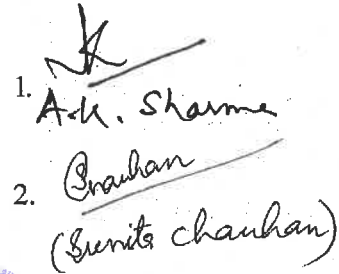 1.
A.K. Sharma
2. Schauhan
(Sunita Chauhan)